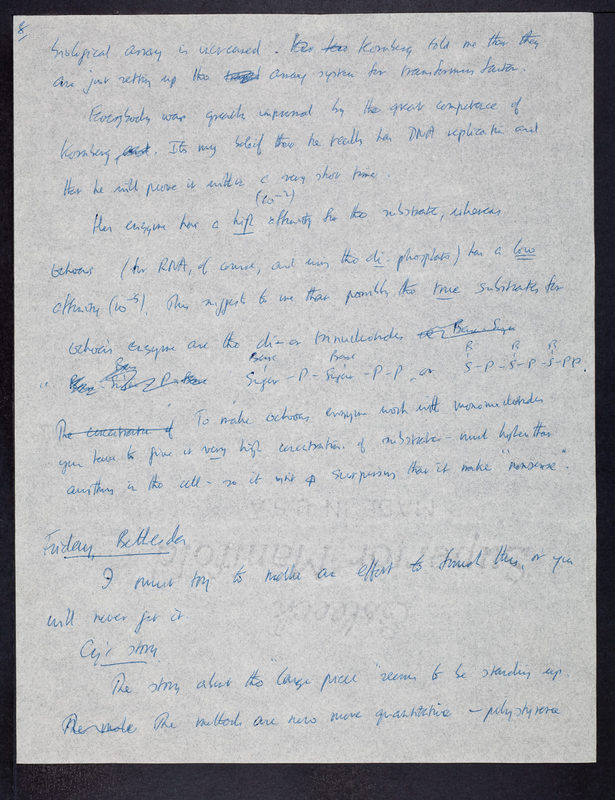 8
biological assay is increased. Kornberg told me that they
are just setting up the assay system for transforming factor.
Everybody was greatly impressed by the great competence of
Kornberg. Its my belief that he really has DNA replication and
that he will prove it within a very short time.
(10⁻⁷)
His enzyme has a high affinity for the substrate, whereas
Ochoa's (for RNA, of course, and uses the di-phosphate) has a low
affinity (10⁻³). This suggests to me that possibly the true substrates for
Ochoa's enzyme are the di- or trinucleotides
Base Base B B B
Sugar - P - Sugar - P - P, or S - P - S - P - S - PP.
The concentration of To make Ochoa's enzyme work with mononucleotides
you have to give it very high concentration of substrate - much higher than
anything in the cell - so it isn't surprising that it makes "nonsense".
Friday, Bethesda
I must try to make an effort to finish this, or you
will never get it.
Cy's story
The story about the "large piece" seems to be standing up.
The methods are now more quantitative - polystyrene